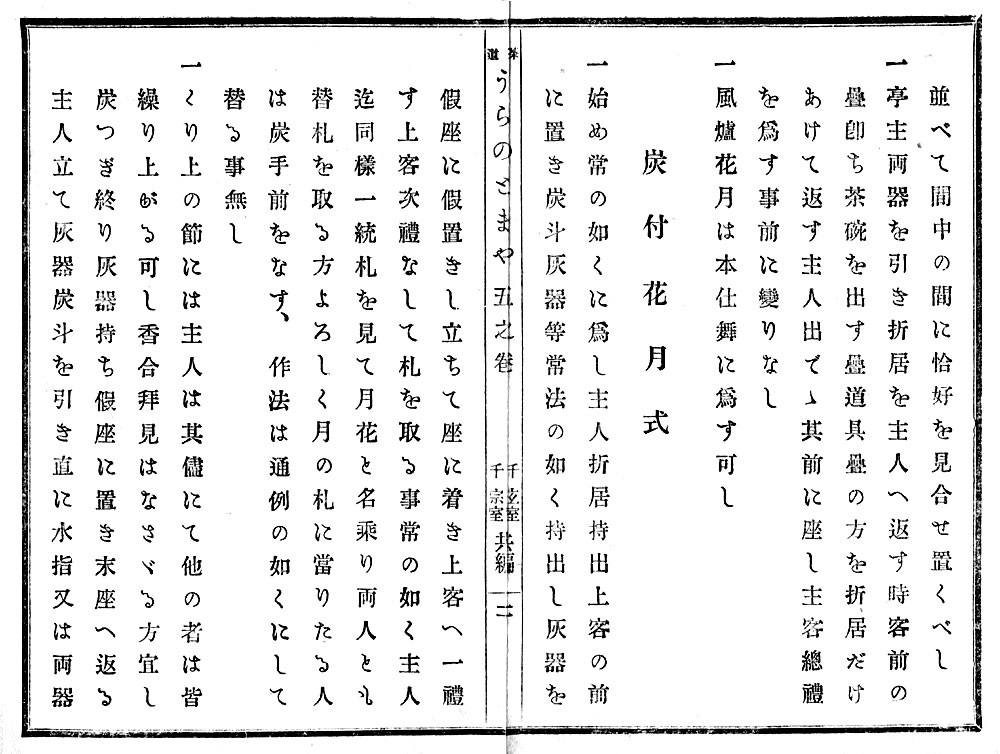 並べて間中の間に恰好を見合せ置くべし
一亭主両器を引き折居を主人へ返す時客前の
疊卽ち茶碗を出す疊道具疊の方を折居だけ
あけて返す主人出でゝ其前に座し主客總禮
を爲す事前に變りなし
一風爐花月は本仕舞に爲す可し
炭付花月式
一始め常の如くに爲し主人折居持出上客の前
に置き炭斗灰器等常法の如く持出し灰器を
茶道
うらのとまや 五之卷
千玄室
千宗室
共編
二
假座に假置きし立ちて座に着き上客へ一禮
す上客次禮なして札を取る事常の如く主人
迄同樣一統札を見て月花と名乘り両人とも
替札を取る方よろしく月の札に當りたる人
は炭手前をなす、作法は通例の如くにして
替る事無し
一くり上の節には主人は其儘にて他の者は皆
繰り上がる可し香合拜見はなさゞる方宜し
炭つぎ終り灰器持ち假座に置き末座へ返る
主人立て灰器炭斗を引き直に水指又は両器